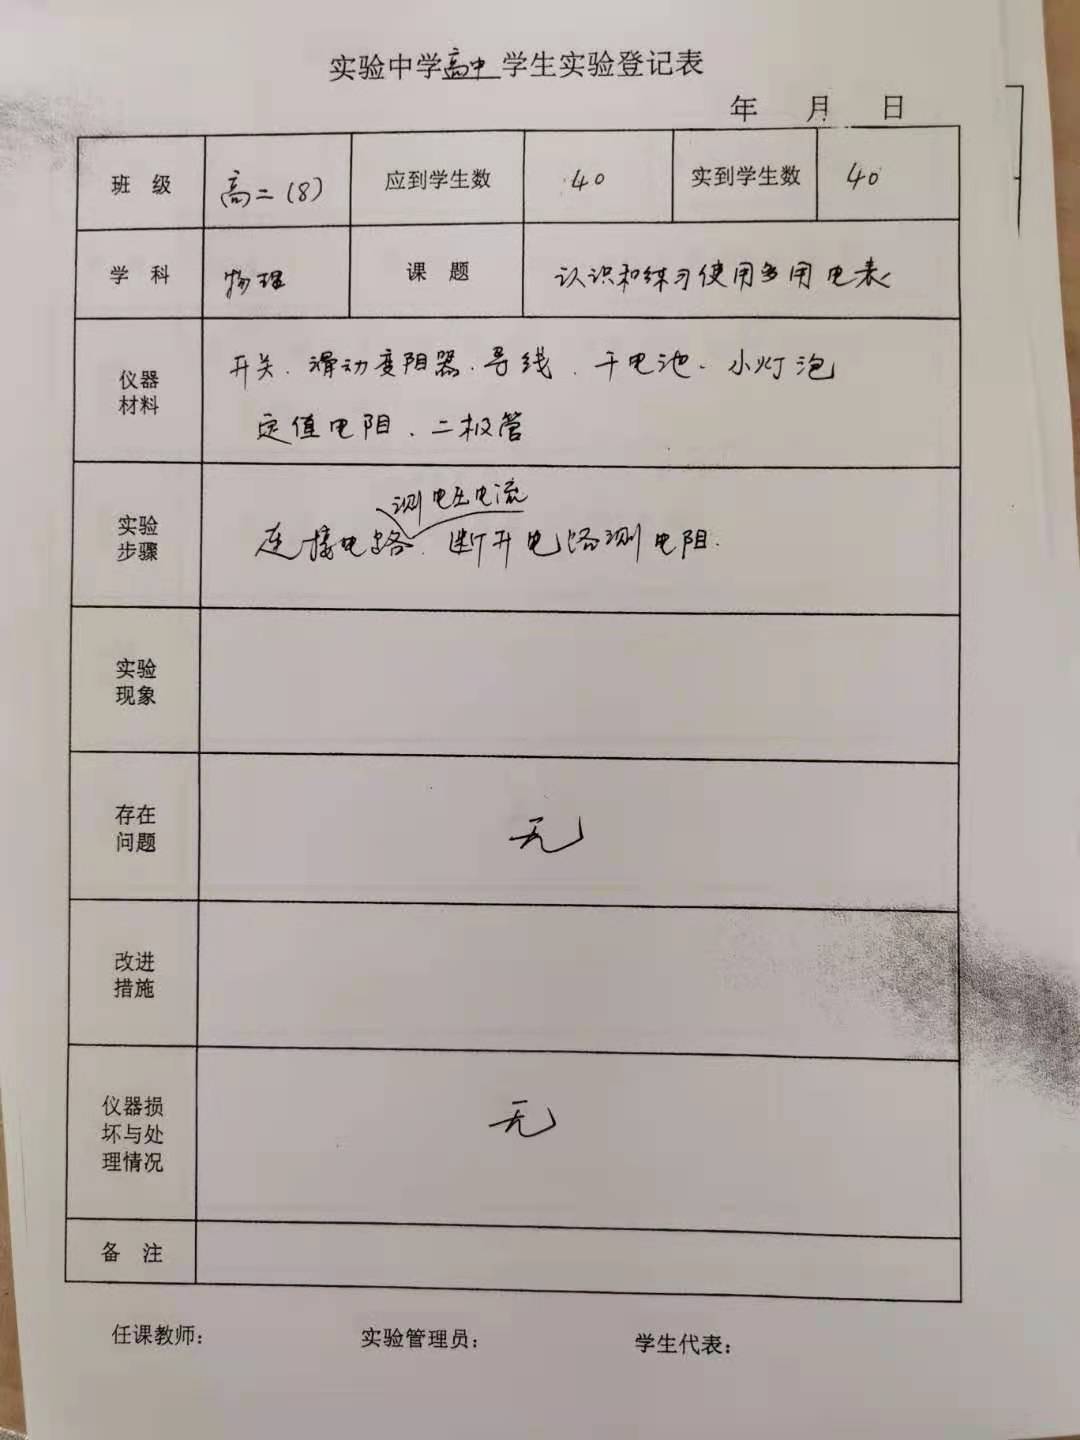 实验中学高中学生实验登记表
年 月 日
班 级 高二(8) 应到学生数 40 实到学生数 40
学 科 物理 课 题 认识和练习使用多用电表
仪器
材料
开关、滑动变阻器、导线、干电池、小灯泡
定值电阻、二极管
实验
步骤
测电压电流
连接电路、断开电路测电阻.
实验
现象
存在
问题
无
改进
措施
仪器损
坏与处
理情况
无
备 注
任课教师: 实验管理员: 学生代表: